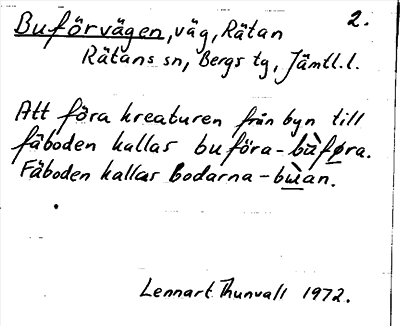 2.
Buförvägen, väg, Rätan
Rätans sn, Bergs tg, Jämtl.l.
Att föra kreaturen från byn till
fäboden kallas buföra - bùføra.
Fäboden kallas bodarna - bùan.
Lennart Thunvall 1972.